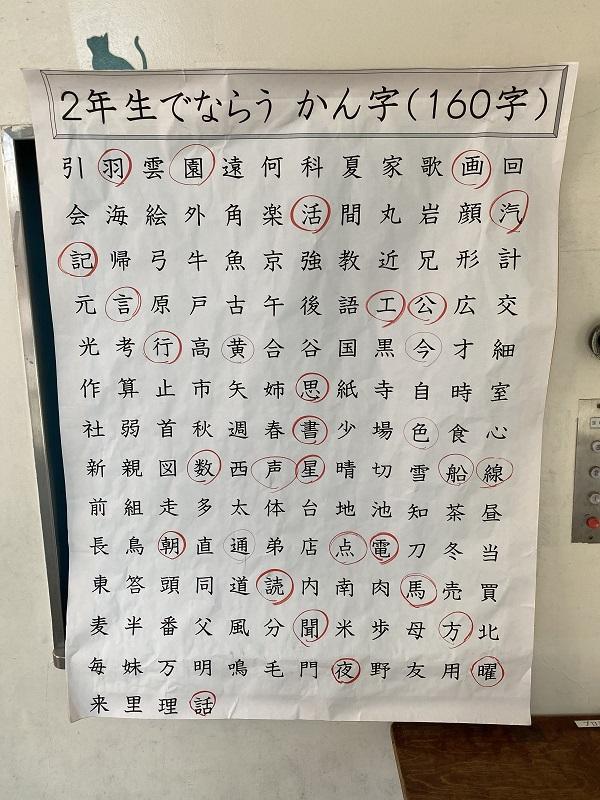 2年生でならう かん字(160字)
引羽雲園遠何科夏家歌画回
会海絵外角楽活間丸岩顔汽
記帰弓牛魚京強教近兄形計
元言原戸古午後語工公広交
光考行高黄合谷国黒今才細
作算止市矢姉思紙寺自時室
社弱首秋週春書少場色食心
新親図数西声星晴切雪船線
前組走多太体台地池知茶昼
長鳥朝直通弟店点電刀冬当
東答頭同道読内南肉馬売買
麦半番父風分聞米歩母方北
毎妹万明鳴毛門夜野友用曜
来里理話